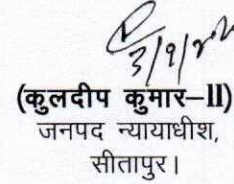 (कुलदीप कुमार–II)
जनपद न्यायाधीश,
सीतापुर।